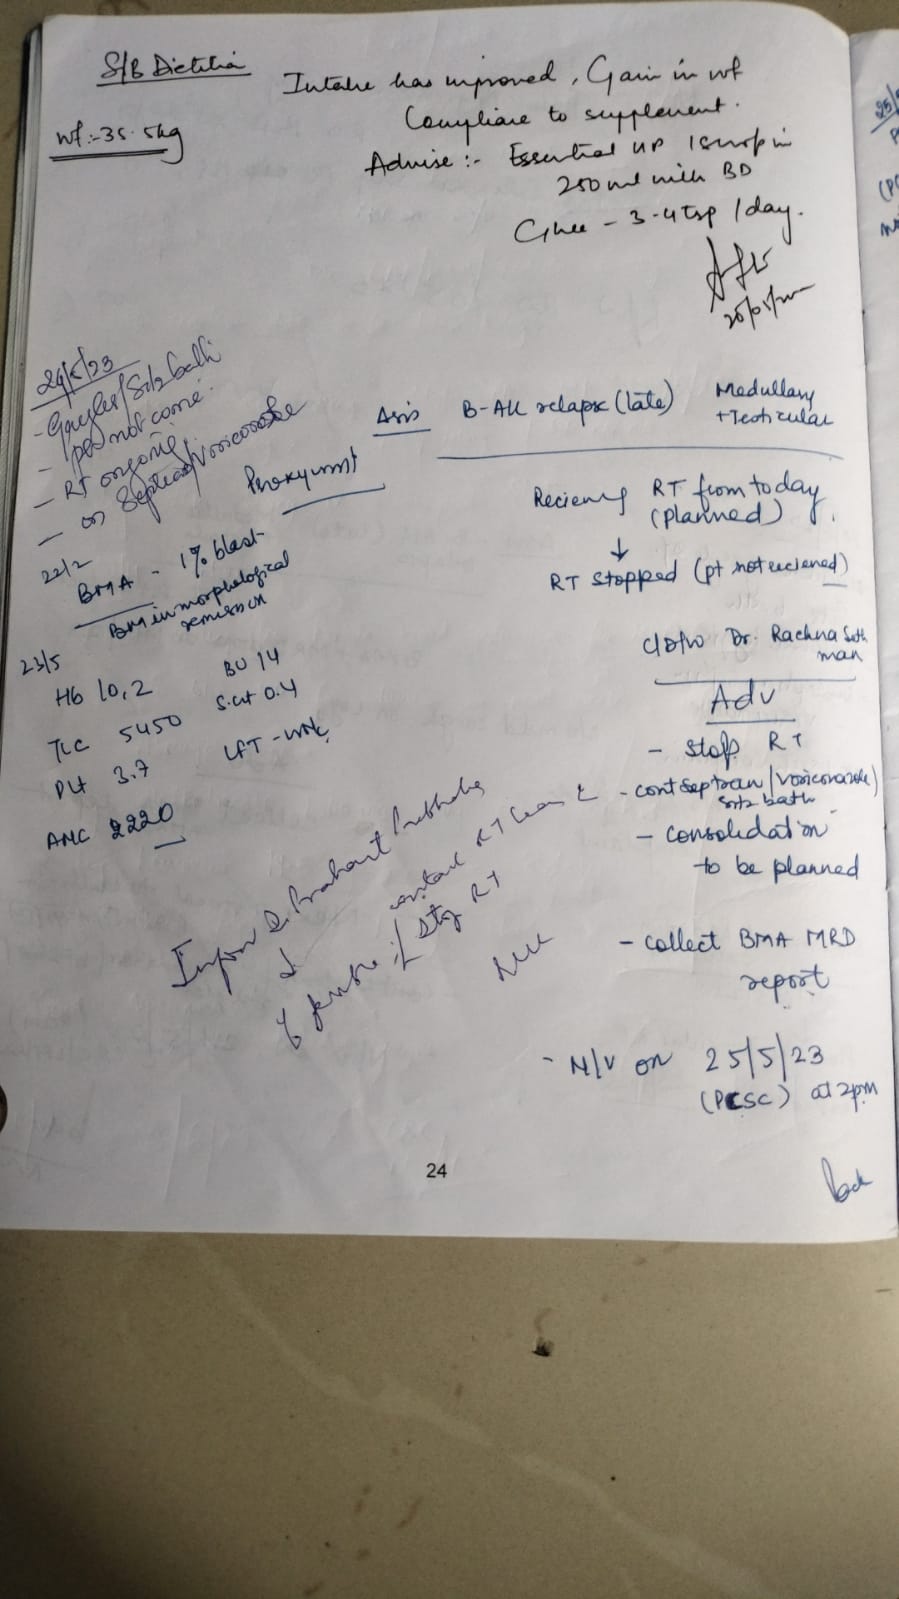 S/B Dietitia
Intake has improved, Gain in wt
wt:-35.5kg
Compliance to supplement.
Advise:- Essential HP 1 scoop in
250 ml milk BD
Ghee - 3-4 tsp /day.
24/5/23
- Gargles/Sitz bath
- pt not come.
- RT ongoing
- on Septran/voriconazole
Δsis B-ALL relapse (late) Medullary
+Testicular
Receiving RT from today
(planned)
↓
RT stopped (pt not received)
22/2
BMA - 1% blast
BM in morphological
remission
23/5
Hb 10.2 BU 14
TLC 5450 S.cr 0.4
Plt 3.7 LFT - WNL
ANC 2220
c/d/w Dr. Rachna Seth
man
Adv
- stop RT
- cont Septran/voriconazole
sitz bath
- consolidation
to be planned
- collect BMA MRD
report
- N/V on 25/5/23
(PCSC) at 2pm
Inform Dr. Prashant
↓
RT team
stop RT
24